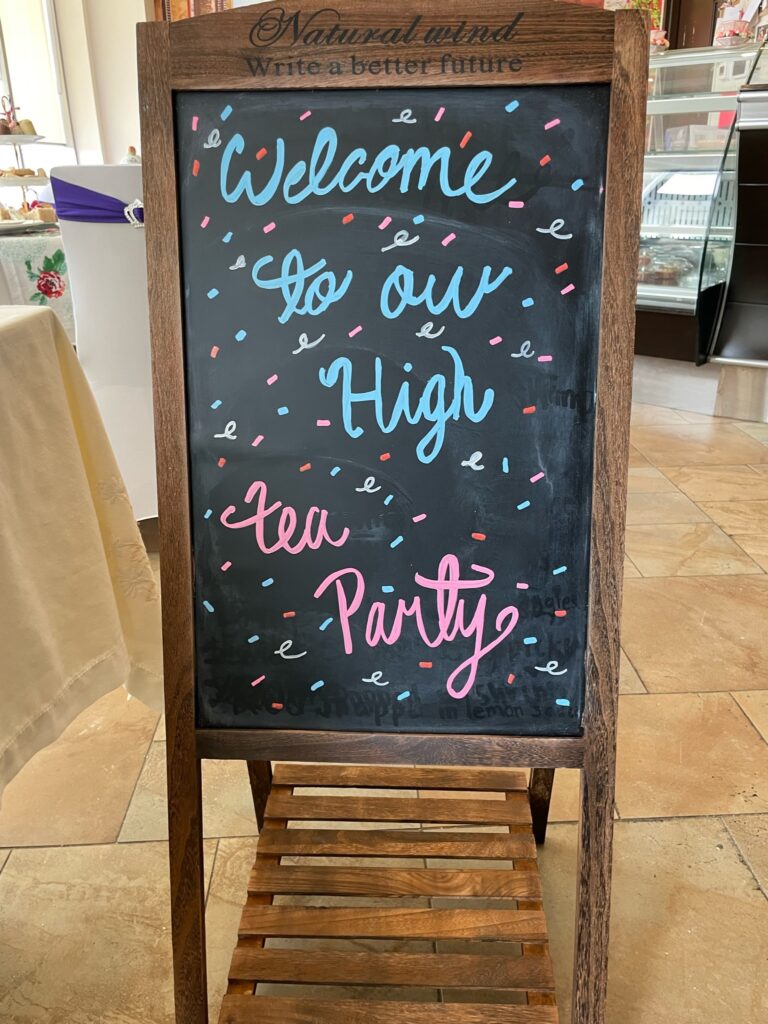 Natural wind
Write a better future
Welcome
to our
High
tea
Party
in lemon